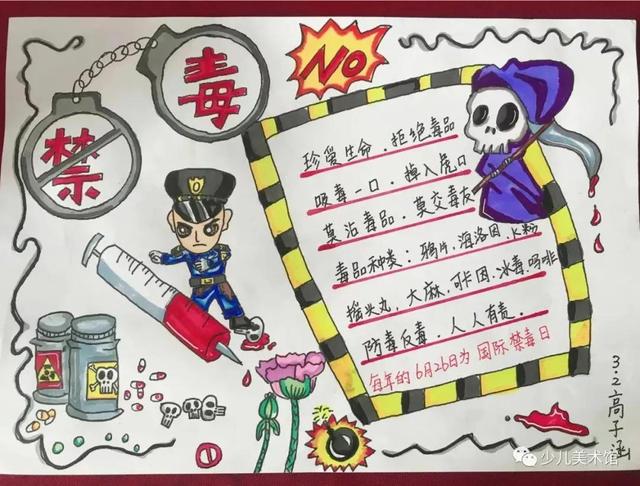 禁毒
NO
珍爱生命，拒绝毒品
吸毒一口，掉入虎口
莫沾毒品，莫交毒友
毒品种类：鸦片、海洛因、K粉
摇头丸，大麻，可卡因、冰毒、吗啡
防毒反毒，人人有责．
每年的6月26日为国际禁毒日
3.2高子涵
少儿美术馆